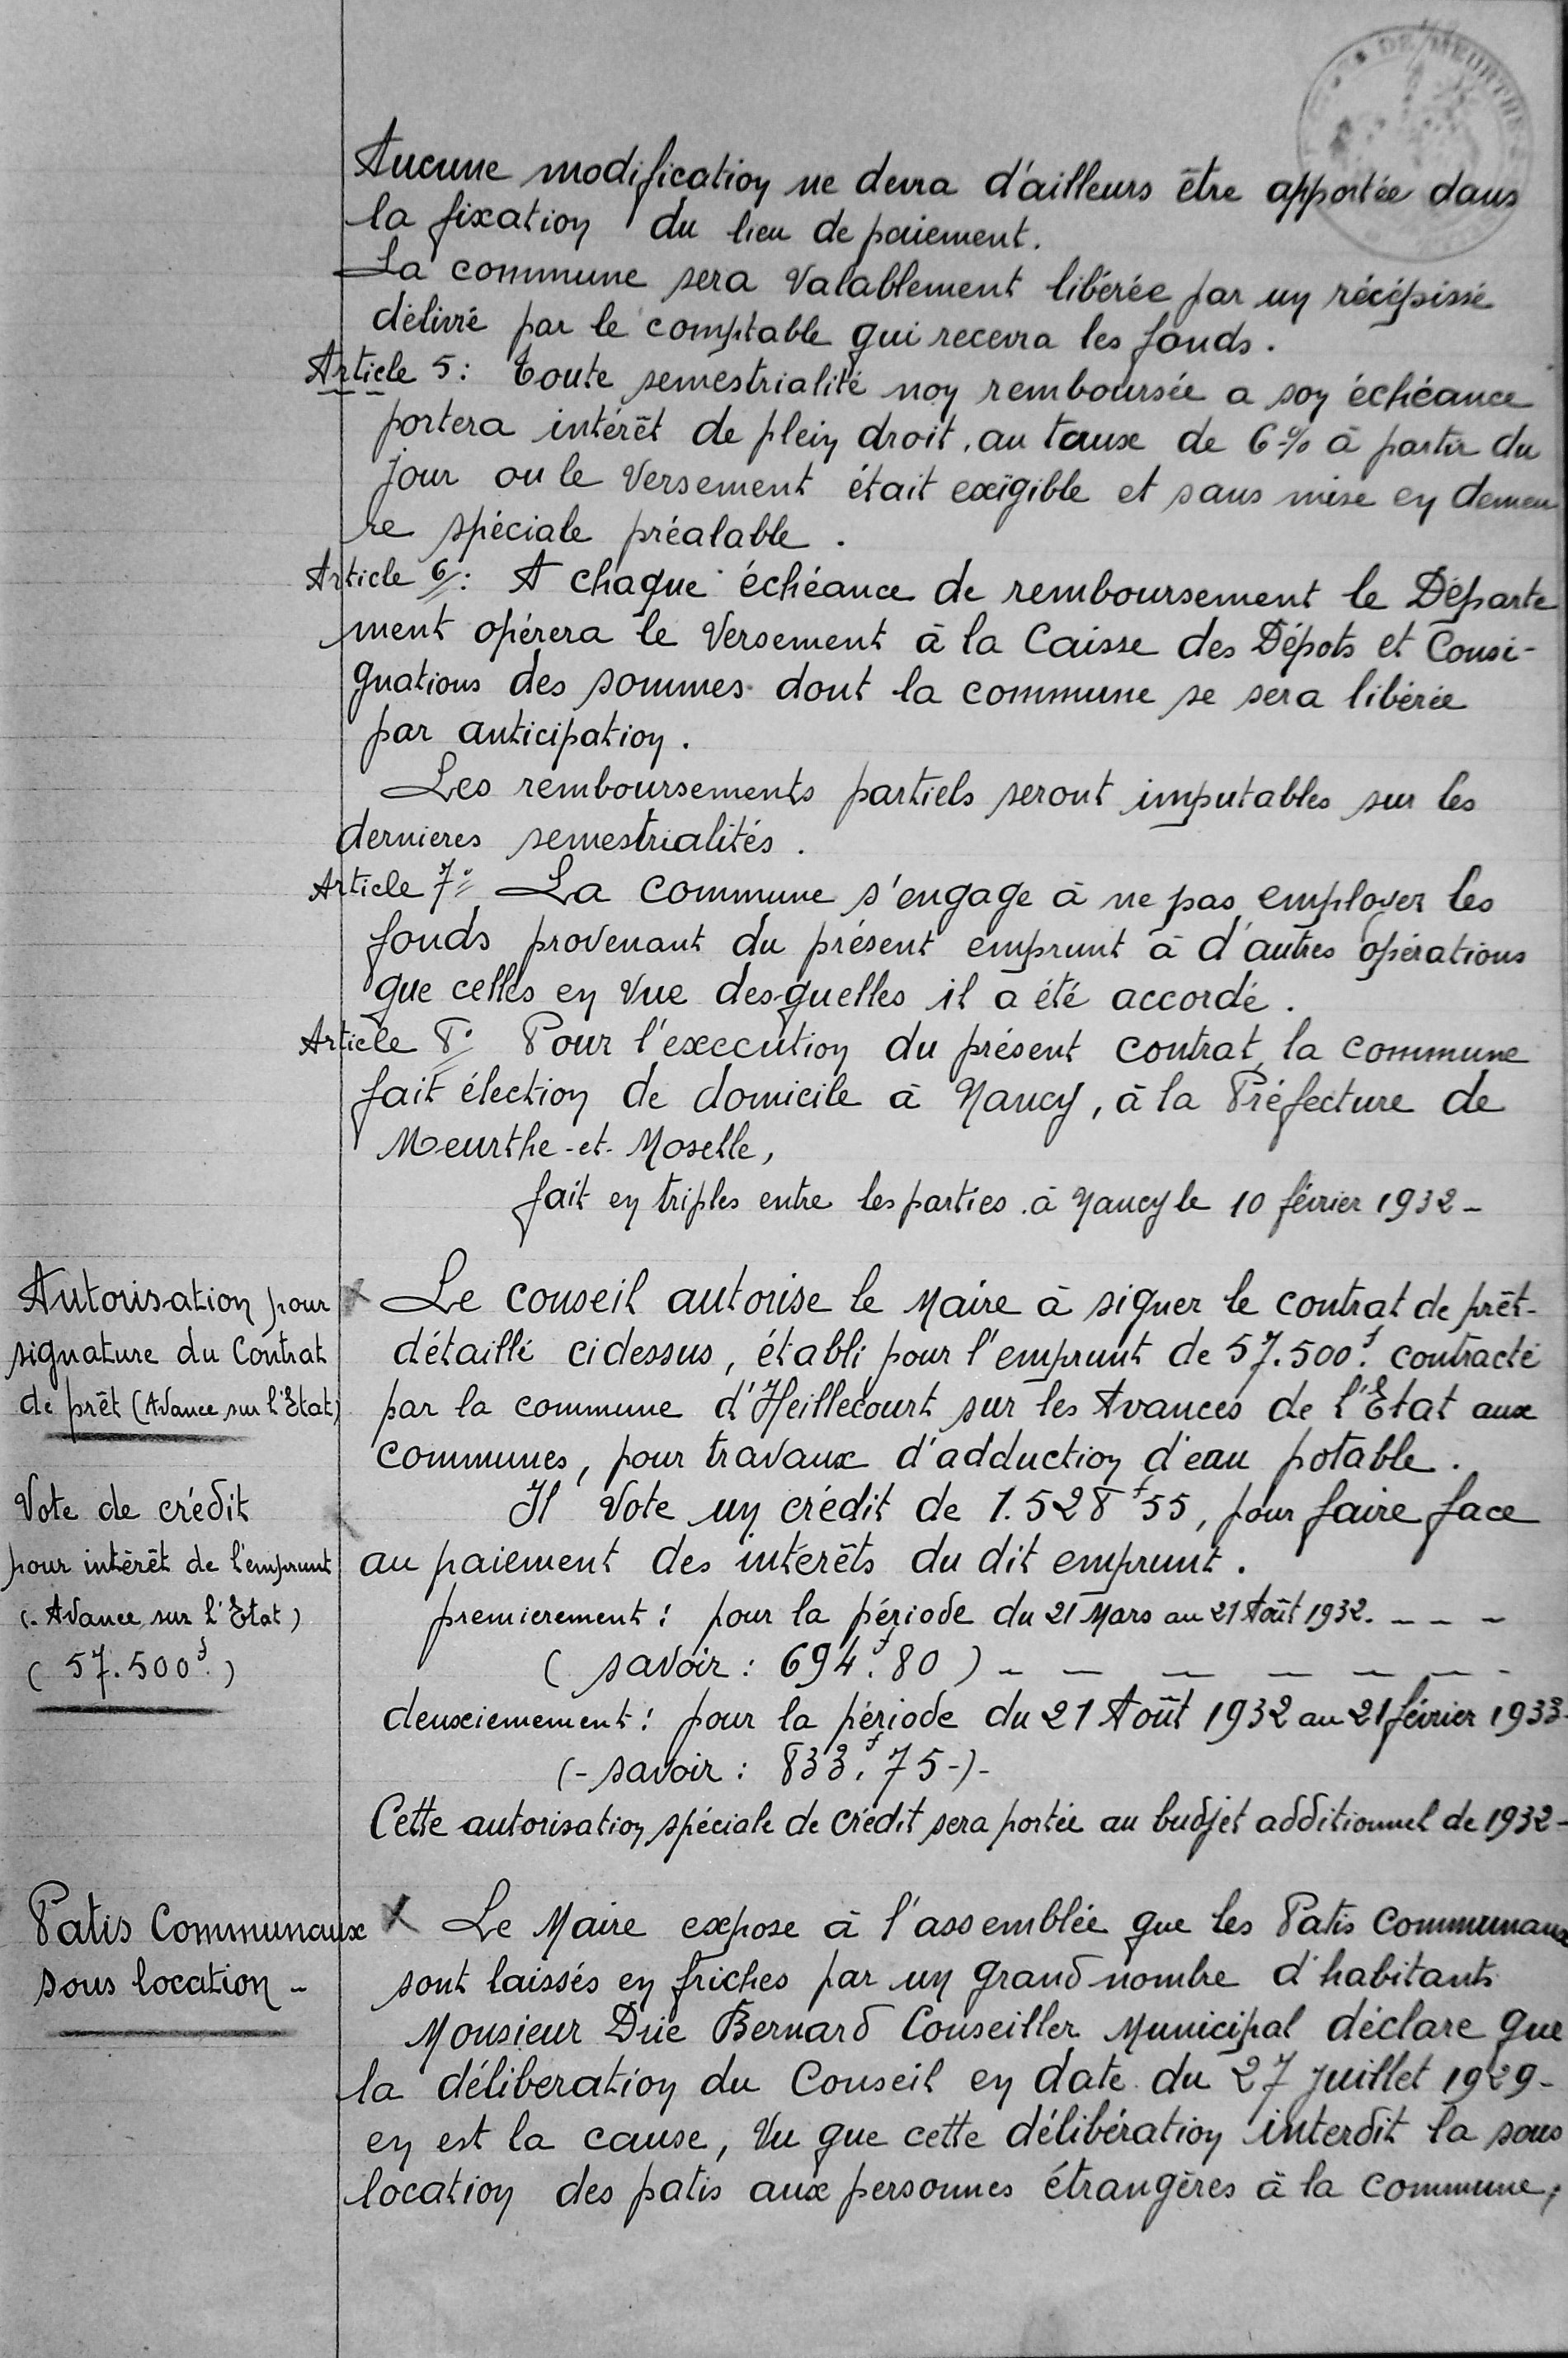 DE MEURTHE
Aucune modification ne devra d'ailleurs être apportée dans
la fixation du lieu de paiement.
La commune sera valablement libérée par un récépissé
délivré par le comptable qui recevra les fonds.
Article 5: Toute semestrialité non remboursée a son échéance
portera intérêt de plein droit, au taux de 6% à partir du
jour ou le versement était exigible et sans mise en demeu
re spéciale préalable.
Article 6: A chaque échéance de remboursement le Départe
ment opérera le versement à la Caisse des Dépots et Consi-
gnations des sommes dont la commune se sera libérée
par anticipation.
Les remboursements partiels seront imputables sur les
dernieres semestrialités.
Article 7: La commune s'engage à ne pas employer les
fonds provenant du présent emprunt à d'autres opérations
que celles en vue desquelles il a été accordé.
Article 8: Pour l'execcution du présent contrat, la commune
fait élection de domicile à Nancy, à la Préfecture de
Meurthe-et-Moselle,
fait en triples entre les parties à Nancy le 10 février 1932-
Autorisation pour
signature du Contrat
de prêt (Avance sur l'Etat)
Le conseil autorise le Maire à signer le contrat de prêt-
détaillé cidessus, établi pour l'emprunt de 57.500f. contracté
par la commune d'Heillecourt sur les Avances de l'Etat aux
communes, pour travaux d'adduction d'eau potable.
Vote de crédit
pour intérêt de l'emprunt
(Avance sur l'Etat)
(57.500f.)
Il vote un crédit de 1.528f55, pour faire face
au paiement des intérêts du dit emprunt.
premierement: pour la période du 21 Mars au 21 Août 1932. - - -
(savoir: 694f.80) - - - - - - -
deuxiemement: pour la période du 21 Août 1932 au 21 février 1933.
(-savoir: 833f.75-)-
Cette autorisation spéciale de crédit sera portée au budjet additionnel de 1932-
Patis Communaux
sous location-
Le Maire expose à l'assemblée que les Patis Communaux
sont laissés en friches par un grand nombre d'habitants
Monsieur Drie Bernard Conseiller Municipal déclare que
la déliberation du Conseil en date du 27 Juillet 1929-
en est la cause, Vu que cette délibération interdit la sous
location des patis aux personnes étrangères à la commune,